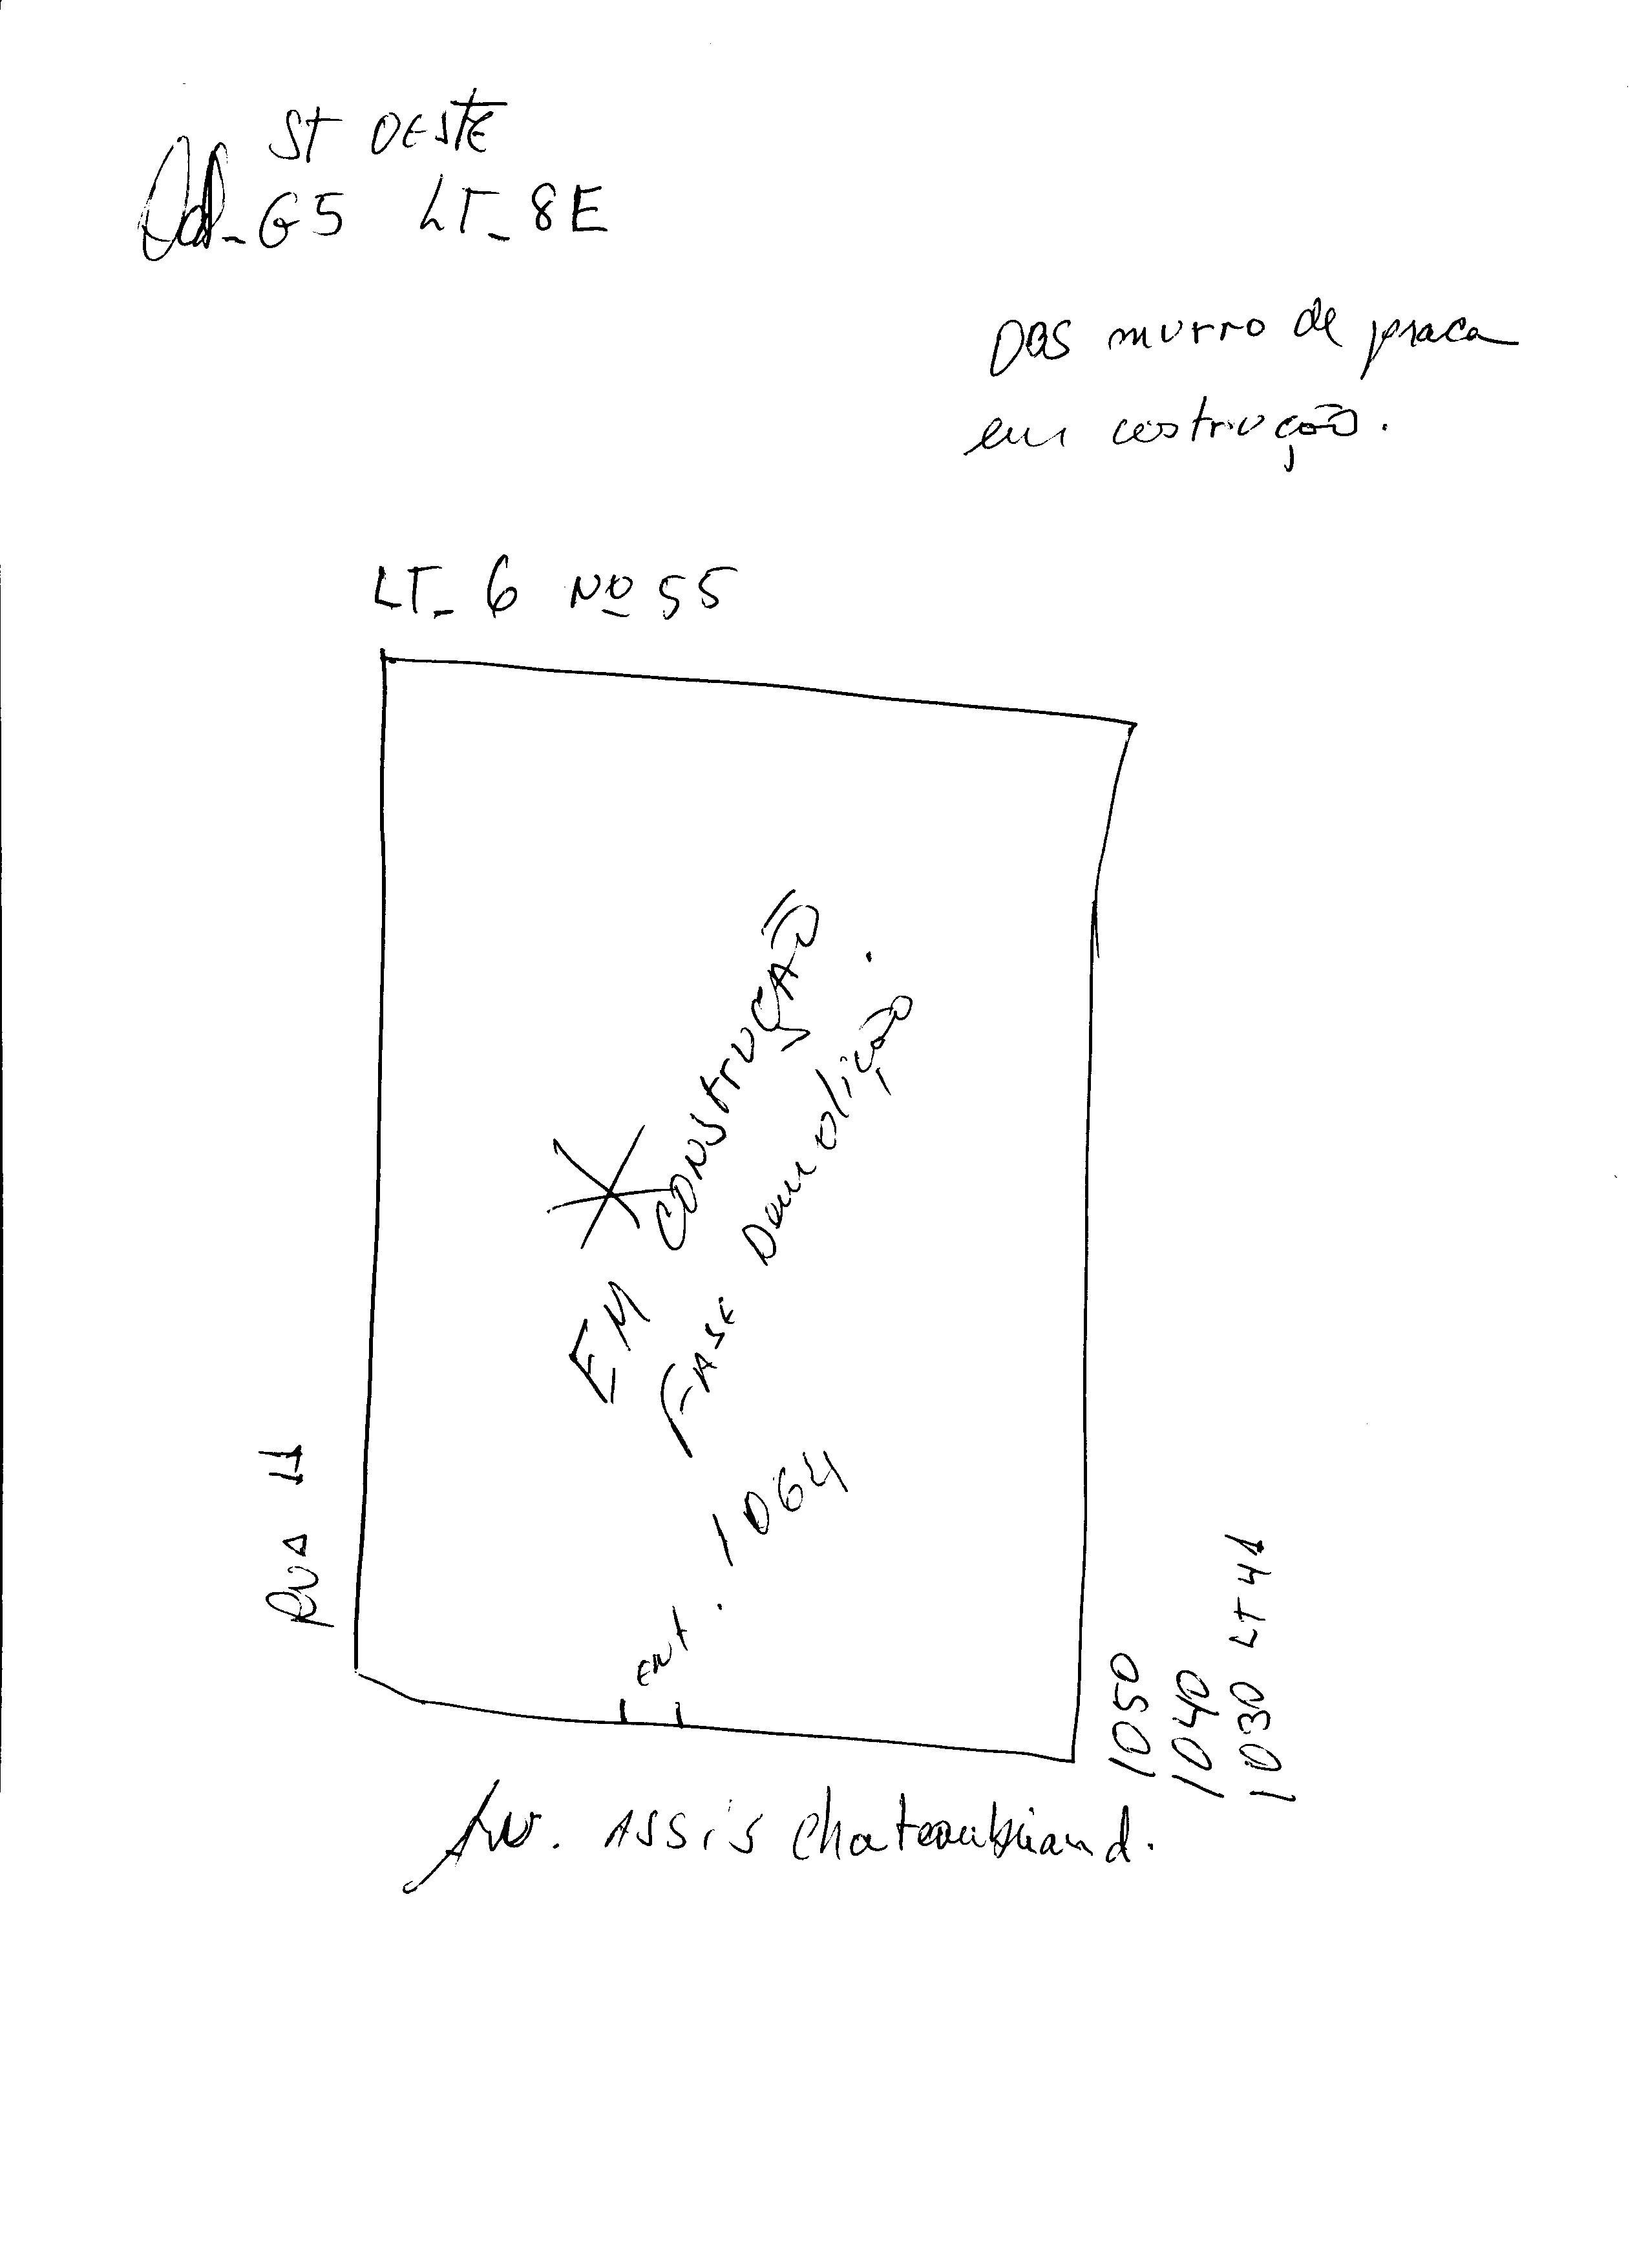 ST OESTE
Qd_G5 LT_8E
OBS murro de praca
em costrução.
LT_6 Nº 55
EM CONSTRUÇÃO
FASE Demolição.
ENT. 1064
RUA 11
1050
1040
1030 LT 41
Av. Assis Chateaubriand.